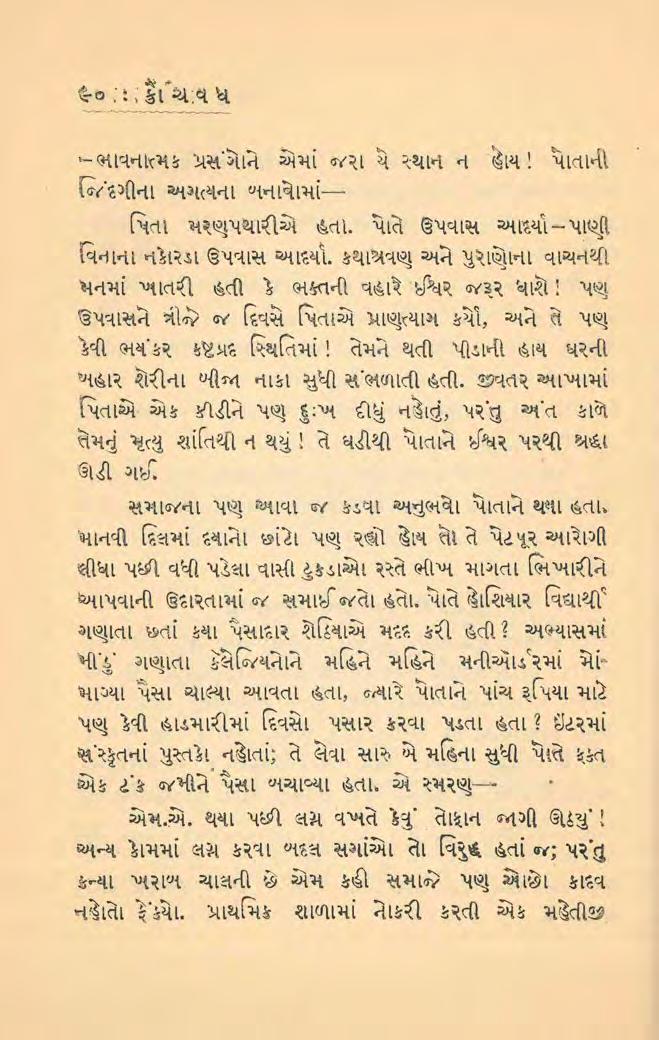 ૯૦ : : ક્રૌંચવધ
–ભાવનાત્મક પ્રસંગોને એમાં જરા યે સ્થાન ન હોય! પોતાની
જિંદગીના અગત્યના બનાવોમાં—
પિતા મરણપથારીએ હતા. પોતે ઉપવાસ આદર્યા–પાણી
વિનાના નકોરડા ઉપવાસ આદર્યા. કથાશ્રવણ અને પુરાણોના વાચનથી
મનમાં ખાતરી હતી કે ભક્તની વહારે ઈશ્વર જરૂર ધાશે! પણ
ઉપવાસને ત્રીજે જ દિવસે પિતાએ પ્રાણત્યાગ કર્યો, અને તે પણ
કેવી ભયંકર કષ્ટપ્રદ સ્થિતિમાં! તેમને થતી પીડાની હાય ઘરની
બહાર શેરીના બીજા નાકા સુધી સંભળાતી હતી. જીવતર આખામાં
પિતાએ એક કીડીને પણ દુઃખ દીધું નહોતું, પરંતુ અંત કાળે
તેમનું મૃત્યુ શાંતિથી ન થયું! તે ઘડીથી પોતાને ઈશ્વર પરથી શ્રદ્ધા
ઊડી ગઈ.
સમાજના પણ આવા જ કડવા અનુભવો પોતાને થયા હતા.
માનવી દિલમાં દયાનો છાંટો પણ રહ્યો હોય તો તે પેટપૂર આરોગી
લીધા પછી વધી પડેલા વાસી ટુકડાઓ રસ્તે ભીખ માગતા ભિખારીને
આપવાની ઉદારતામાં જ સમાઈ જતો હતો. પોતે હોશિયાર વિદ્યાર્થી
ગણાતા છતાં કયા પૈસાદાર શેઠિયાએ મદદ કરી હતી? અભ્યાસમાં
મીંડું ગણાતા કૅલેજિયનોને મહિને મહિને મનીઑર્ડરમાં મોં-
માગ્યા પૈસા ચાલ્યા આવતા હતા, જ્યારે પોતાને પાંચ રૂપિયા માટે
પણ કેવી હાડમારીમાં દિવસો પસાર કરવા પડતા હતા? ઇંટરમાં
સંસ્કૃતનાં પુસ્તકો નહોતાં; તે લેવા સારુ બે મહિના સુધી પોતે ફક્ત
એક ટંક જમીને પૈસા બચાવ્યા હતા. એ સ્મરણ—
એમ.એ. થયા પછી લગ્ન વખતે કેવું તોફાન જાગી ઊઠયું!
અન્ય કોમમાં લગ્ન કરવા બદલ સગાંઓ તો વિરુદ્ધ હતાં જ; પરંતુ
કન્યા ખરાબ ચાલની છે એમ કહી સમાજે પણ ઓછો કાદવ
નહોતો ફેંક્યો. પ્રાથમિક શાળામાં નોકરી કરતી એક મહેતીજી